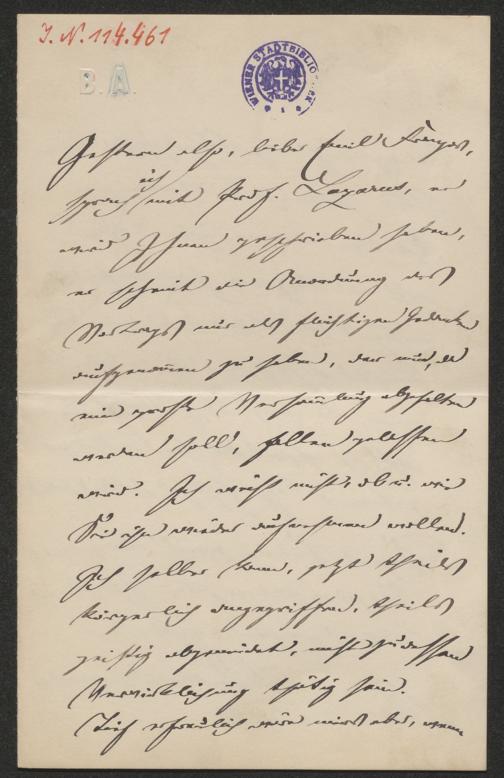 J. N. 114.461
B. A.
WIENER STADTBIBLIOTHEK
Gestern also, lieber Emil Franzos,
sprach ich mit Prof. Lazarus, er
wird Ihnen geschrieben haben,
er scheint die Anordnung des
Vortrags nur als flüchtigen Gedanken
aufgenommen zu haben, der nun, da
eine große Versammlung abgehalten
werden soll, fallen gelassen
wird. Ich weiß nicht, ob u. wie
Sie ihn wieder aufnehmen wollen.
Ich selber kann, jetzt theils
körperlich angegriffen, theils
geistig abgemüdet, nicht für dessen
Verwirklichung thätig sein.
Tief erfreulich wäre mirs aber, wenn